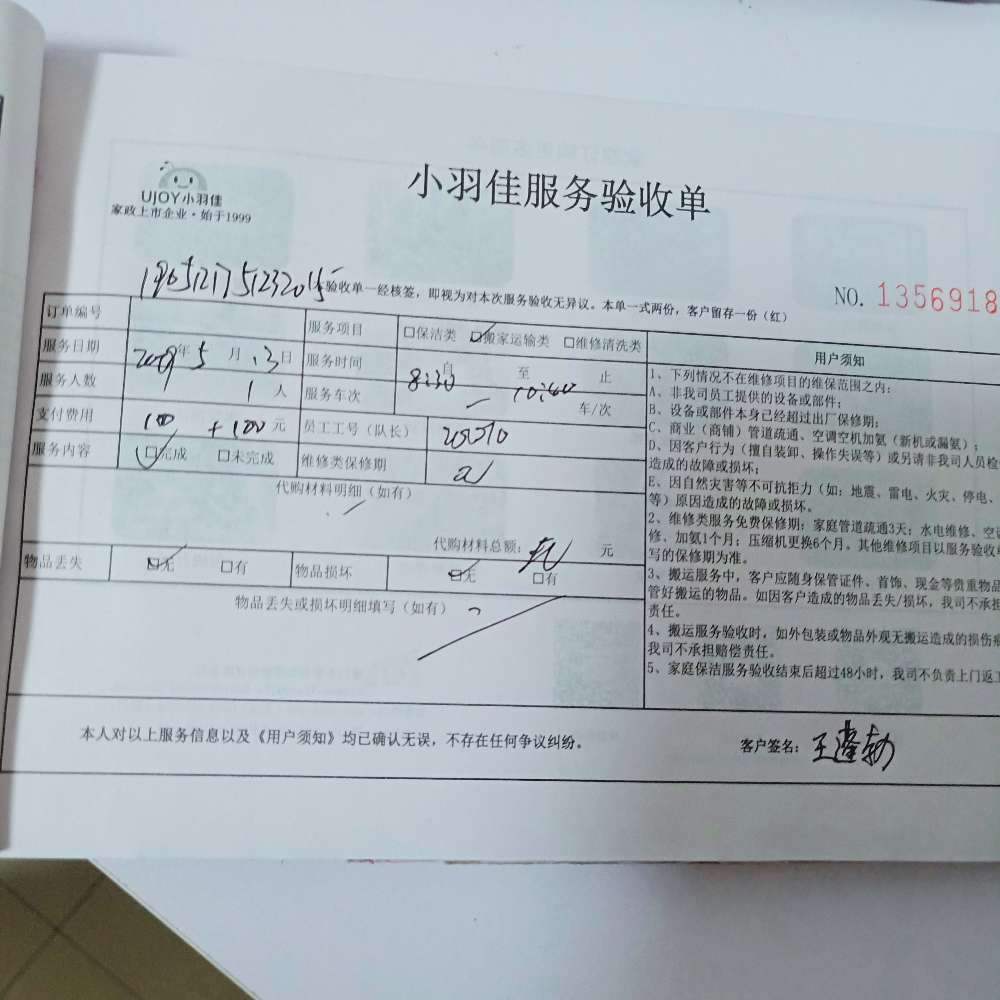 UJOY小羽佳
家政上市企业·始于1999
小羽佳服务验收单
验收单一经核签，即视为对本次服务验收无异议。本单一式两份，客户留存一份（红）
NO. 1356918
订单编号
服务项目 □保洁类 □搬家运输类 □维修清洗类
服务日期 2019年5月13日
服务时间 自8:30至10:40止
服务人数 1人
服务车次 车/次
支付费用 100+100元
员工工号（队长）
服务内容 □完成 □未完成
维修类保修期
代购材料明细（如有）
代购材料总额：无 元
物品丢失 □无 □有
物品损坏 □无 □有
物品丢失或损坏明细填写（如有）
用户须知
1、下列情况不在维修项目的维保范围之内：
A、非我司员工提供的设备或部件；
B、设备或部件本身已经超过出厂保修期；
C、商业（商铺）管道疏通、空调空机加氨（新机或漏氨）；
D、因客户行为（擅自装卸、操作失误等）或另请非我司人员检
造成的故障或损坏；
E、因自然灾害等不可抗拒力（如：地震、雷电、火灾、停电、
等）原因造成的故障或损坏。
2、维修类服务免费保修期：家庭管道疏通3天；水电维修、空调
修、加氨1个月；压缩机更换6个月。其他维修项目以服务验收单
写的保修期为准。
3、搬运服务中，客户应随身保管证件、首饰、现金等贵重物品
管好搬运的物品。如因客户造成的物品丢失/损坏，我司不承担
责任。
4、搬运服务验收时，如外包装或物品外观无搬运造成的损伤痕
我司不承担赔偿责任。
5、家庭保洁服务验收结束后超过48小时，我司不负责上门返工
本人对以上服务信息以及《用户须知》均已确认无误，不存在任何争议纠纷。
客户签名：